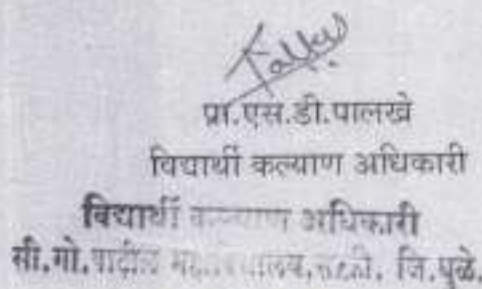 प्रा.एस.डी.पालखे
विद्यार्थी कल्याण अधिकारी
विद्यार्थी कल्याण अधिकारी
सी.गो.पाटील महाविद्यालय, जि.धुळे.